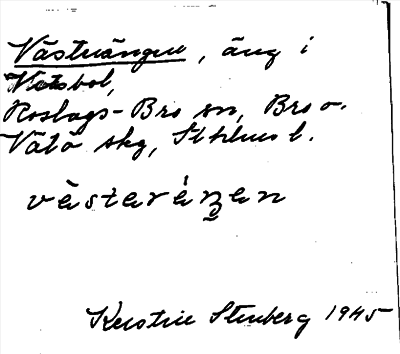 Västerängen, äng i
Matsbol,
Roslags-Bro sn, Bro o.
Vätö skg, Sthlms l.
västeräŋen
Kerstin Stenberg 1945